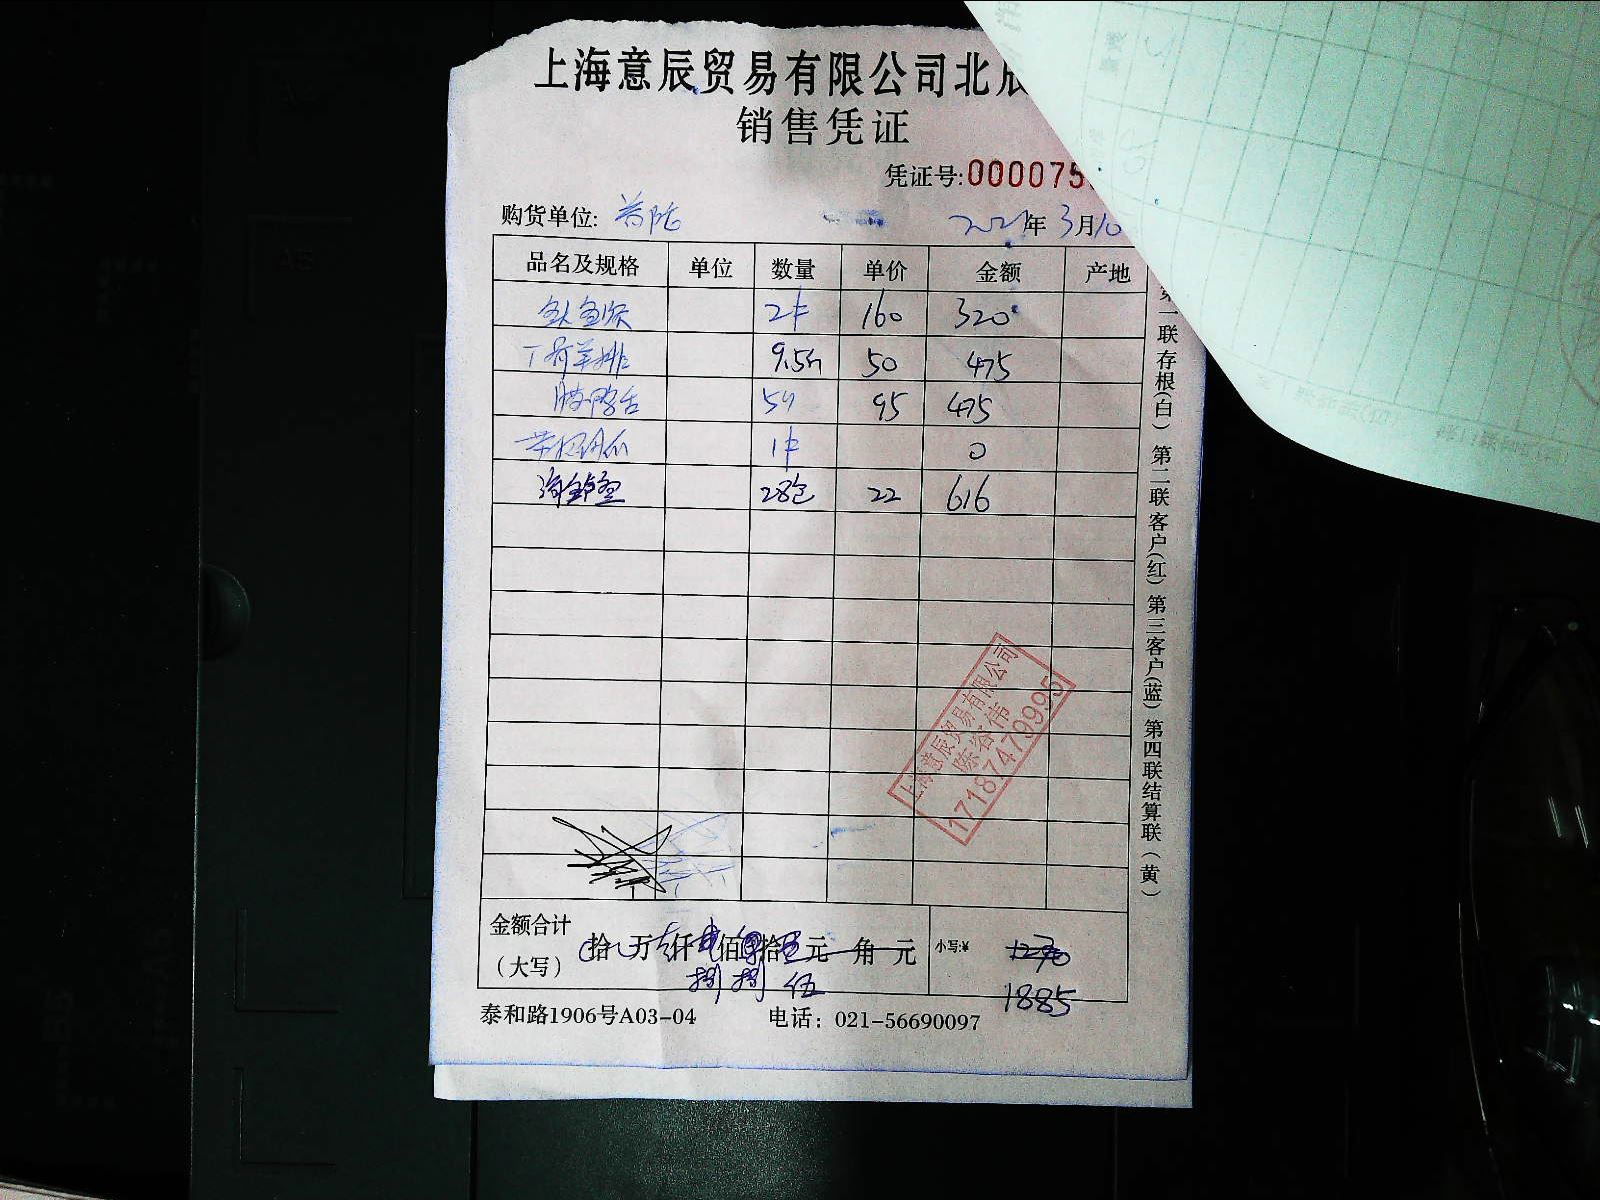 上海意辰贸易有限公司北辰
销售凭证
凭证号:000075
购货单位: 普陀 年 3月10
品名及规格 单位 数量 单价 金额 产地
2件 160 320
丁骨羊排 9.5 50 475
鸭舌 95 475
1件 0
海鲈鱼 28包 22 616
上海意辰贸易有限公司
17187479995
金额合计
(大写) 拾 万 仟 佰 拾 元 角 元 小写:¥
捌 捌 伍 1885
泰和路1906号A03-04 电话: 021-56690097
第一联存根(白) 第二联客户(红) 第三客户(蓝) 第四联结算联(黄)